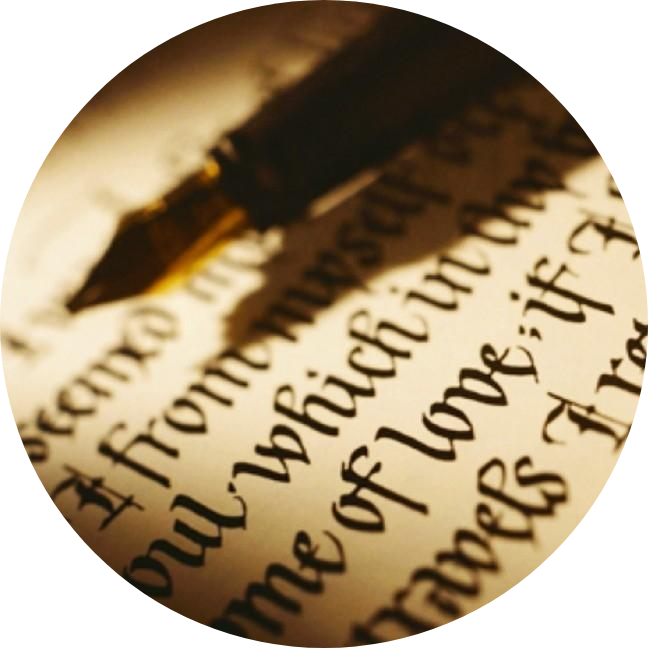 seemed
I from myself
oul which in thy
ome of love; if I
travels I re